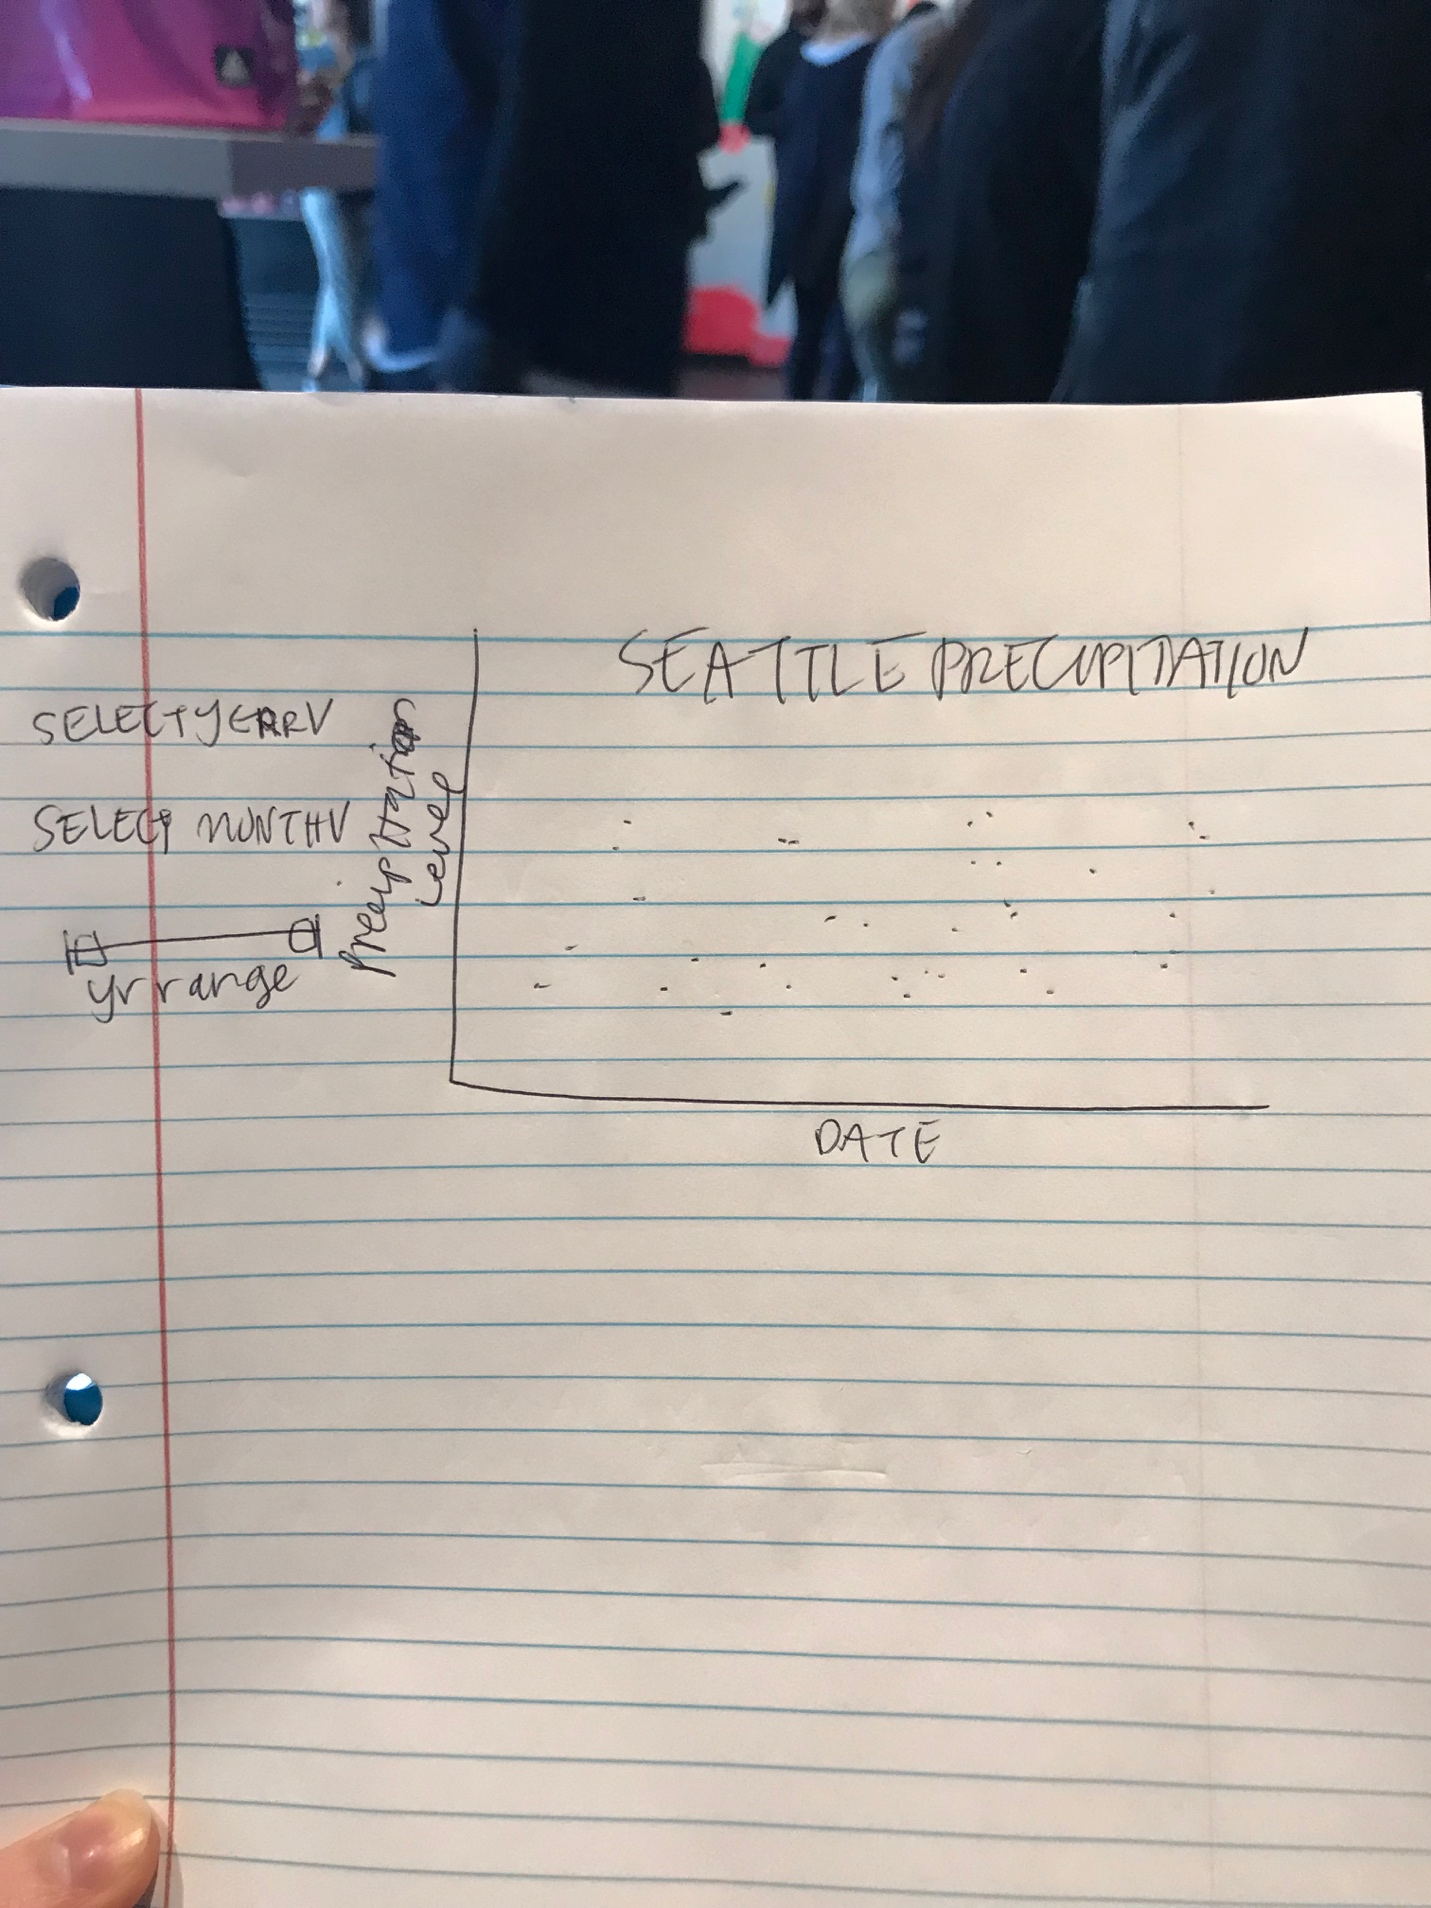 SEATTLE PRECIPITATION
SELECT YEAR V
SELECT MONTH V
yr range
Precipitation
Level
DATE